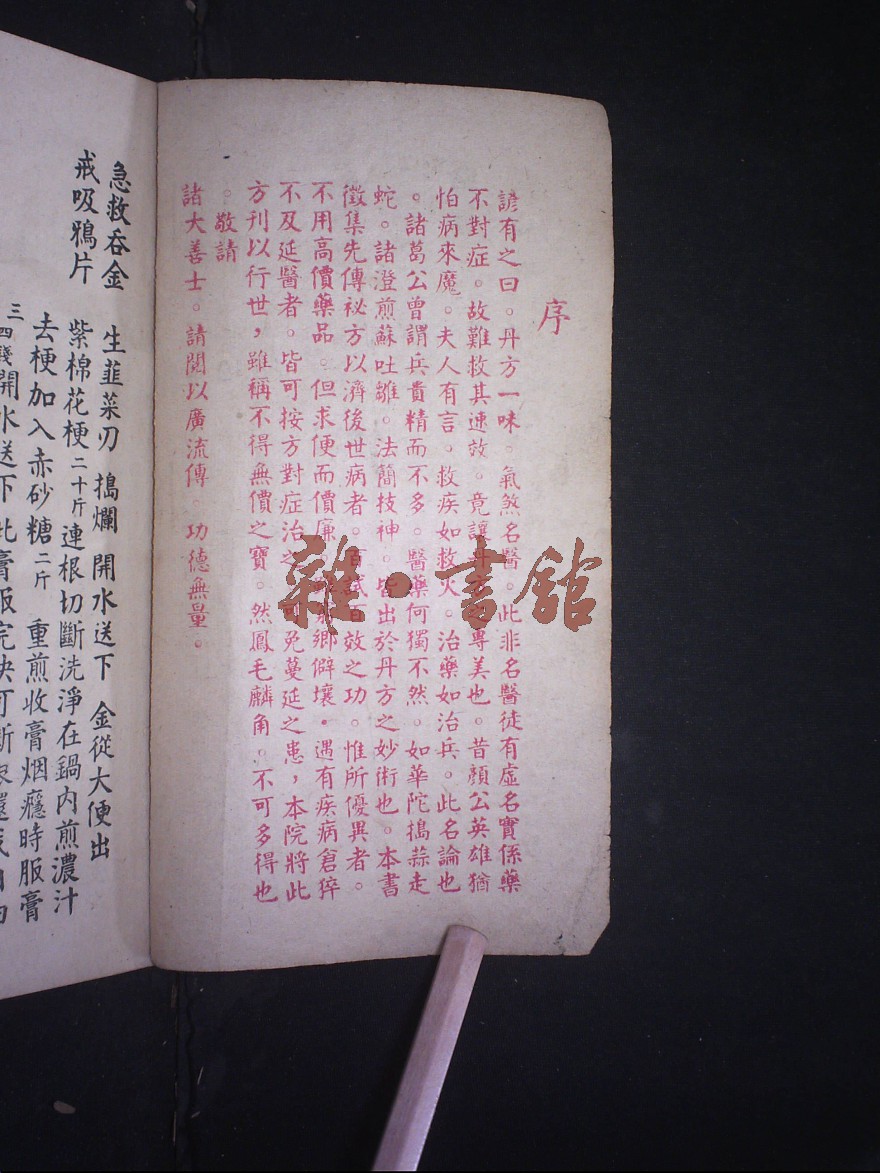 序
諺有之曰。丹方一味。氣煞名醫。此非名醫徒有虛名實係藥
不對症。故難救其速效。竟讓丹方之專美也。昔顏公英雄猶
怕病來魔。夫人有言。救疾如救火。治藥如治兵。此名論也
。諸葛公曾謂兵貴精而不多。醫藥何獨不然。如華陀搗蒜走
蛇。諸澄煎蘇吐雛。法簡技神。皆出於丹方之妙術也。本書
徵集先傳祕方以濟後世病者。百試百效之功。惟所優異者。
不用高價藥品。但求便而價廉。鄉僻壤。遇有疾病倉猝
不及延醫者。皆可按方對症治之。可免蔓延之患，本院將此
方刊以行世，雖稱不得無價之寶。然鳳毛麟角。不可多得也
。敬請
諸大善士。請閱以廣流傳。功德無量。
雜·書館
急救吞金 生韮菜刃 搗爛 開水送下 金從大便出
戒吸鴉片 紫棉花梗二十斤連根切斷洗淨在鍋內煎濃汁
去梗加入赤砂糖二斤 重煎收膏烟癮時服膏
三四錢開水送下此膏服完